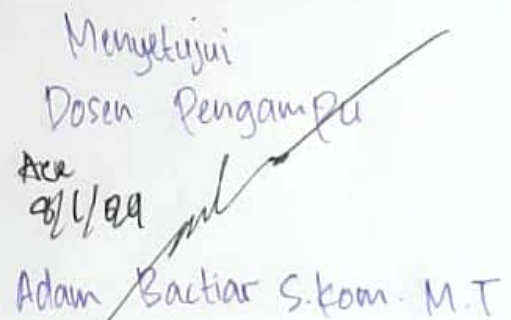 Menyetujui
Dosen Pengampu
Acc
Adam Bactiar S.Kom. M.T